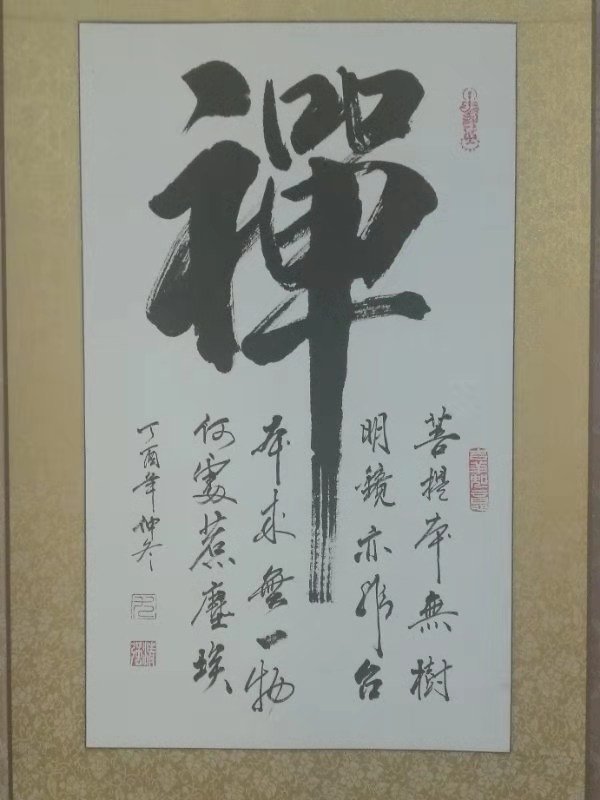 禪
菩提本無樹
明鏡亦非台
本來無一物
何處惹塵埃
丁酉年仲冬